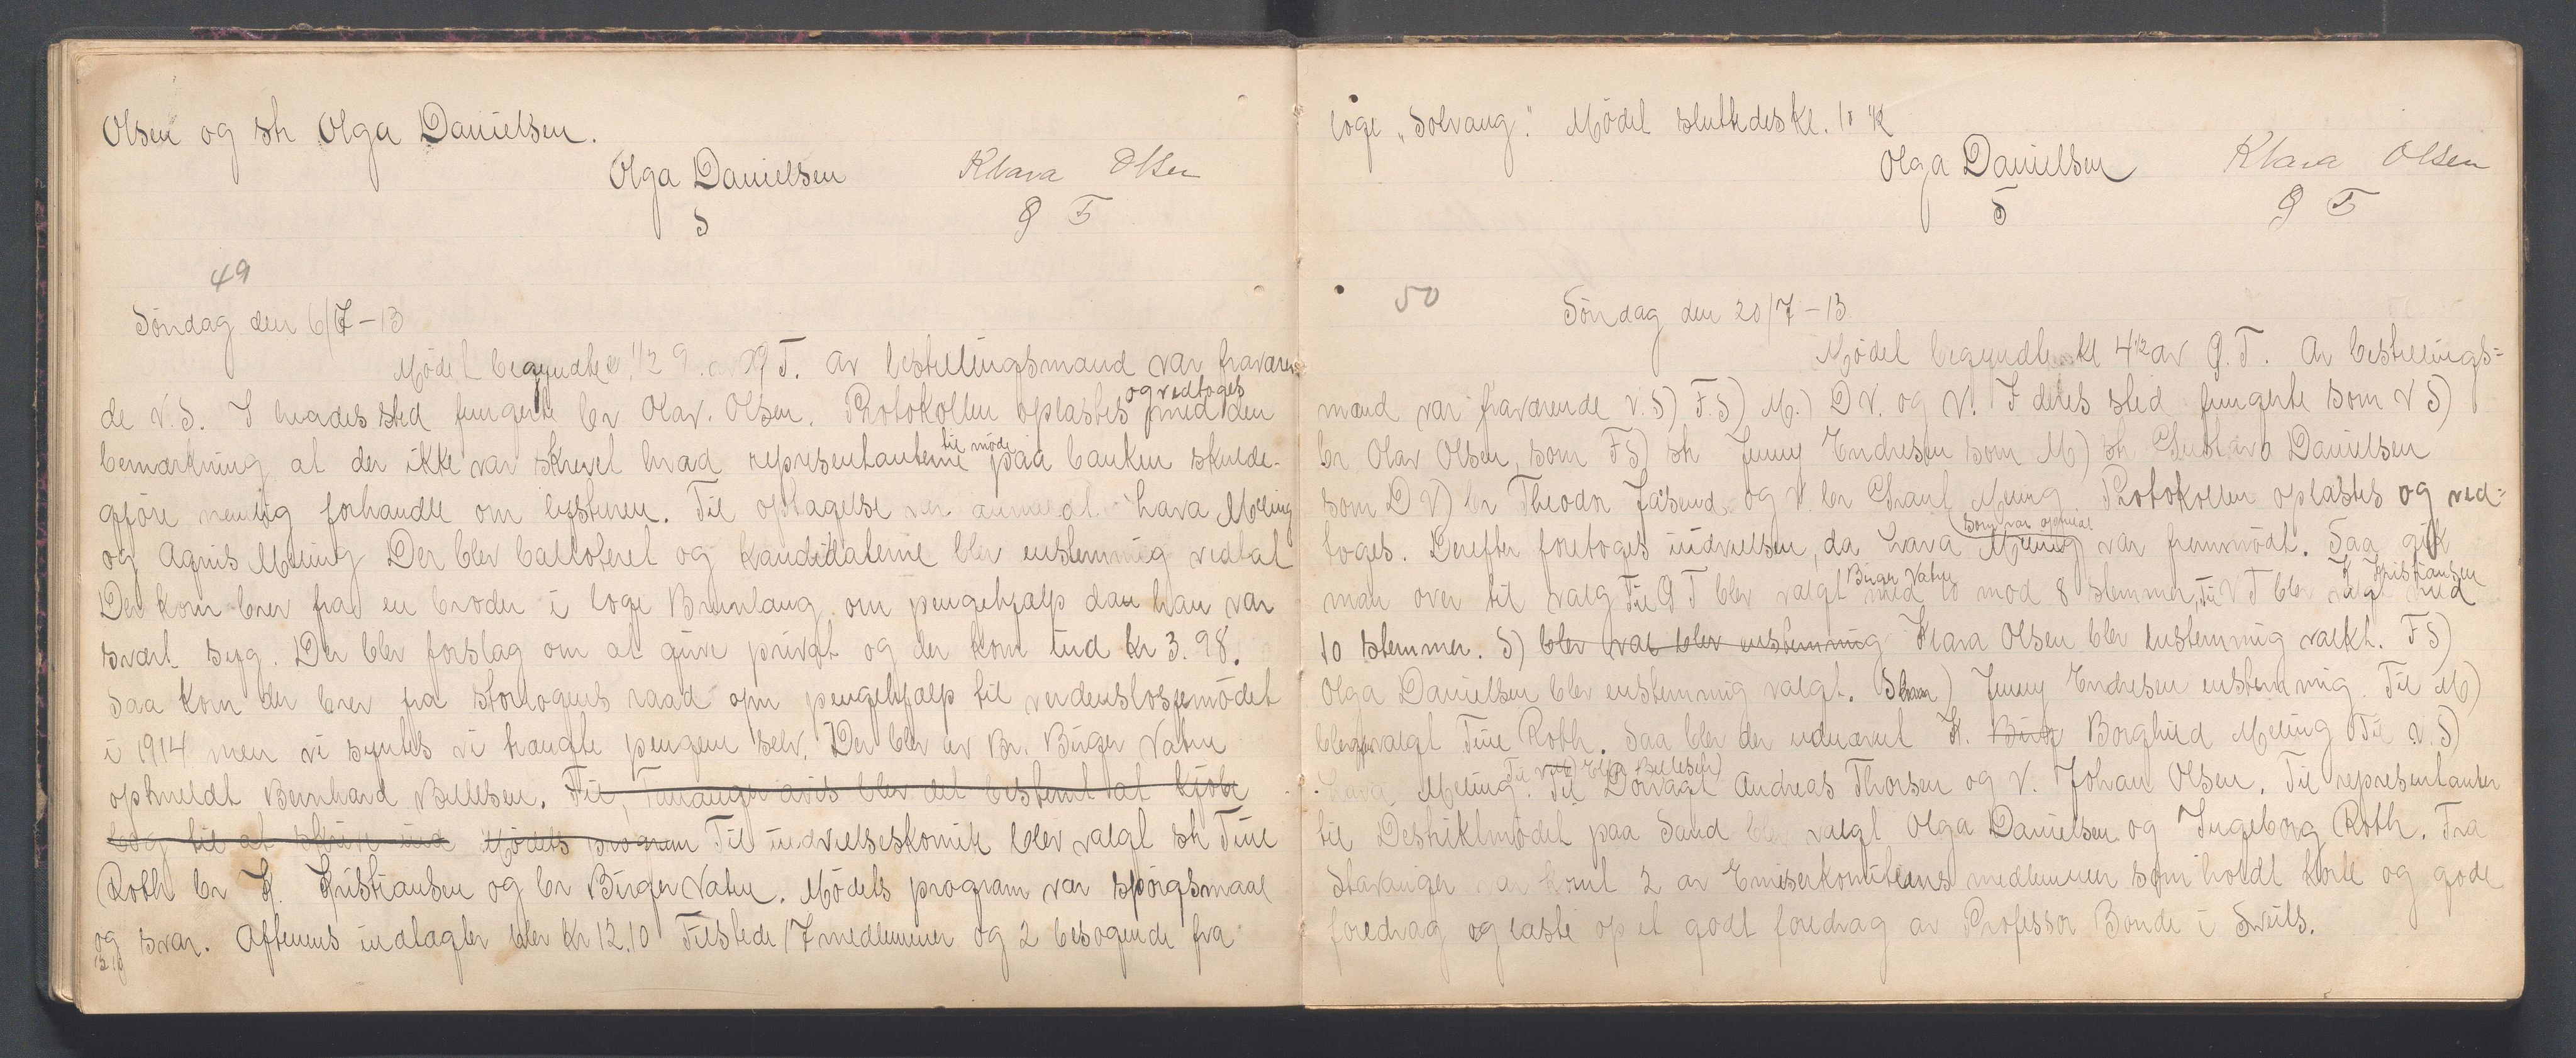 Olsen og str Olga Danielsen.
Olga Danielsen Klara Olsen
S G T
49
Søndag den 6/7-13
Mødet begyndte 1/2 9. av G T. Av bestillingsmænd var fraværen-
de V.S. I hvades sted fungerte br Olav. Olsen. Protokollen oplæstes og vedtoges med den
bemærkning at der ikke var skrevet hvad representanterne til møde paa banken skulde-
gjøre nemlig forhandle om lysturen. Til optagelse var anmeldt Lava Meling
og Agnis Meling Der blev balloteret og kandidaterne blev enstemmig vedtat
Der kom brev fra en broder i loge Brunlaug om pengehjælp dau han var
svært syg. Der blev forslag om at give privat og der kom ind kr 3.98.
Saa kom der brev fra storlogens raad om pengehjælp til verdenslosjemødet
i 1914 men vi syntes vi trængte pengene selv. Der blev av Br. Birger Vatne
opmeldt Bernhard Bellesen. Til, Tananger avis blev det bestemt at kjøbe
bog til at skrive ind Mødets program Til indvielseskomite blev valgt str Tine
Roth br K. Kristiansen og br Birger Vatne. Mødets program var spørgsmaal
og svar. Aftenens indtægter blev kr 12.10 Tilstede 17 medlemmer og 2 besøgende fra
12 10
loge "Solvang." Mødet sluttedes kl. 10 1/2
Olga Danielsen Klara Olsen
S G T
50
Søndag den 20/7-13.
Mødet begyndte kl 4 1/2 av G.T. Av bestillings=
mænd var fraværende V.S) F.S) M.) D V. og V. I deres sted fungerte som V S)
br Olav Olsen, som FS) str Jenny Endresen som M) str Gustava Danielsen
som D V) br Theodor og V. br Meling. Protokollen oplæstes og ved=
toges. Derefter foretoges indvielsen, da Lava Meling som var opmeldt var fremmødt. Saa gik
man over til valg Til G T blev valgt Birger Vatne med 10 mod 8 stemmer, Til V T blev valgt K Kristiansen med
10 stemmer. S) blev val blev enstemmig Klara Olsen blev enstemmig valkt. FS)
Olga Danielsen blev enstemmig valgt. Skm) Jenny Endresen enstemmig. Til M)
blev valgt Tine Roth. Saa blev der utnævnt K. Birg Borghild Meling Til V.S)
Lava Meling. Til Til D.V valgt Andreas Thorsen og V. Johan Olsen. Til representanter
til Destriktmødet paa Sand blev valgt Olga Danielsen og Ingeborg Roth. Fra
Stavanger var komt 2 av Emiserkomiteens medlemmer som holdt korte og gode
foredrag og læste op et godt foredrag av Professor Bonde i Sveits.